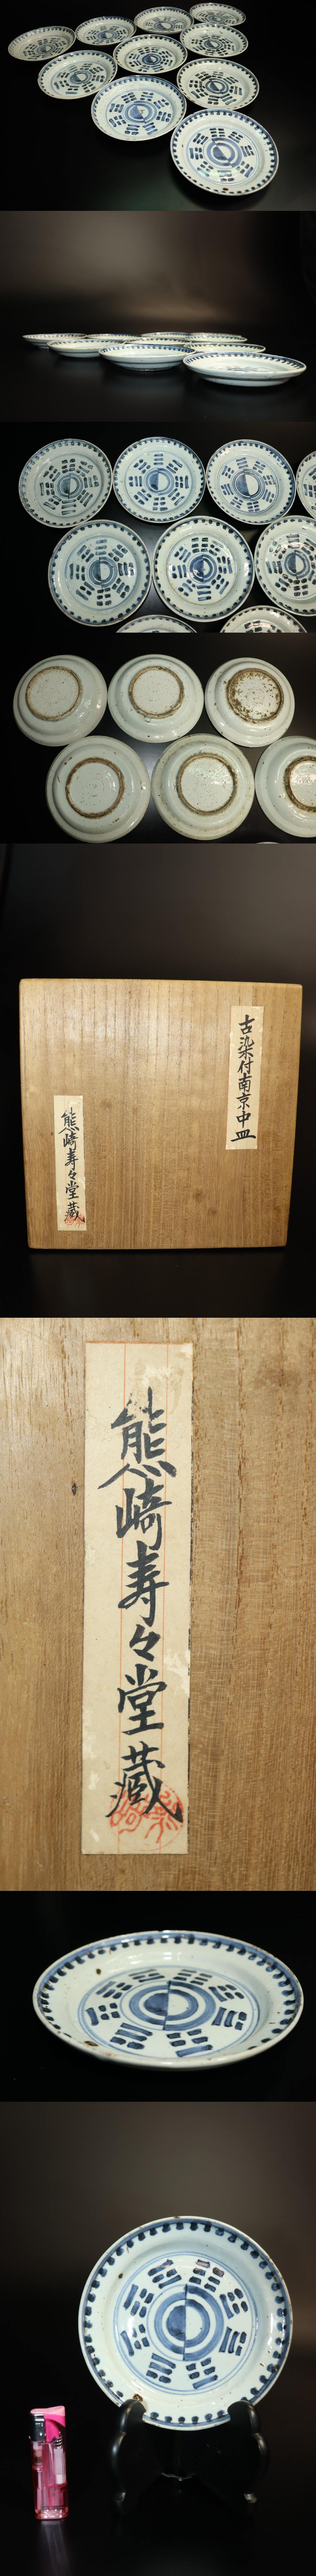 古染付南京中皿
熊崎寿々堂蔵
熊崎寿々堂蔵